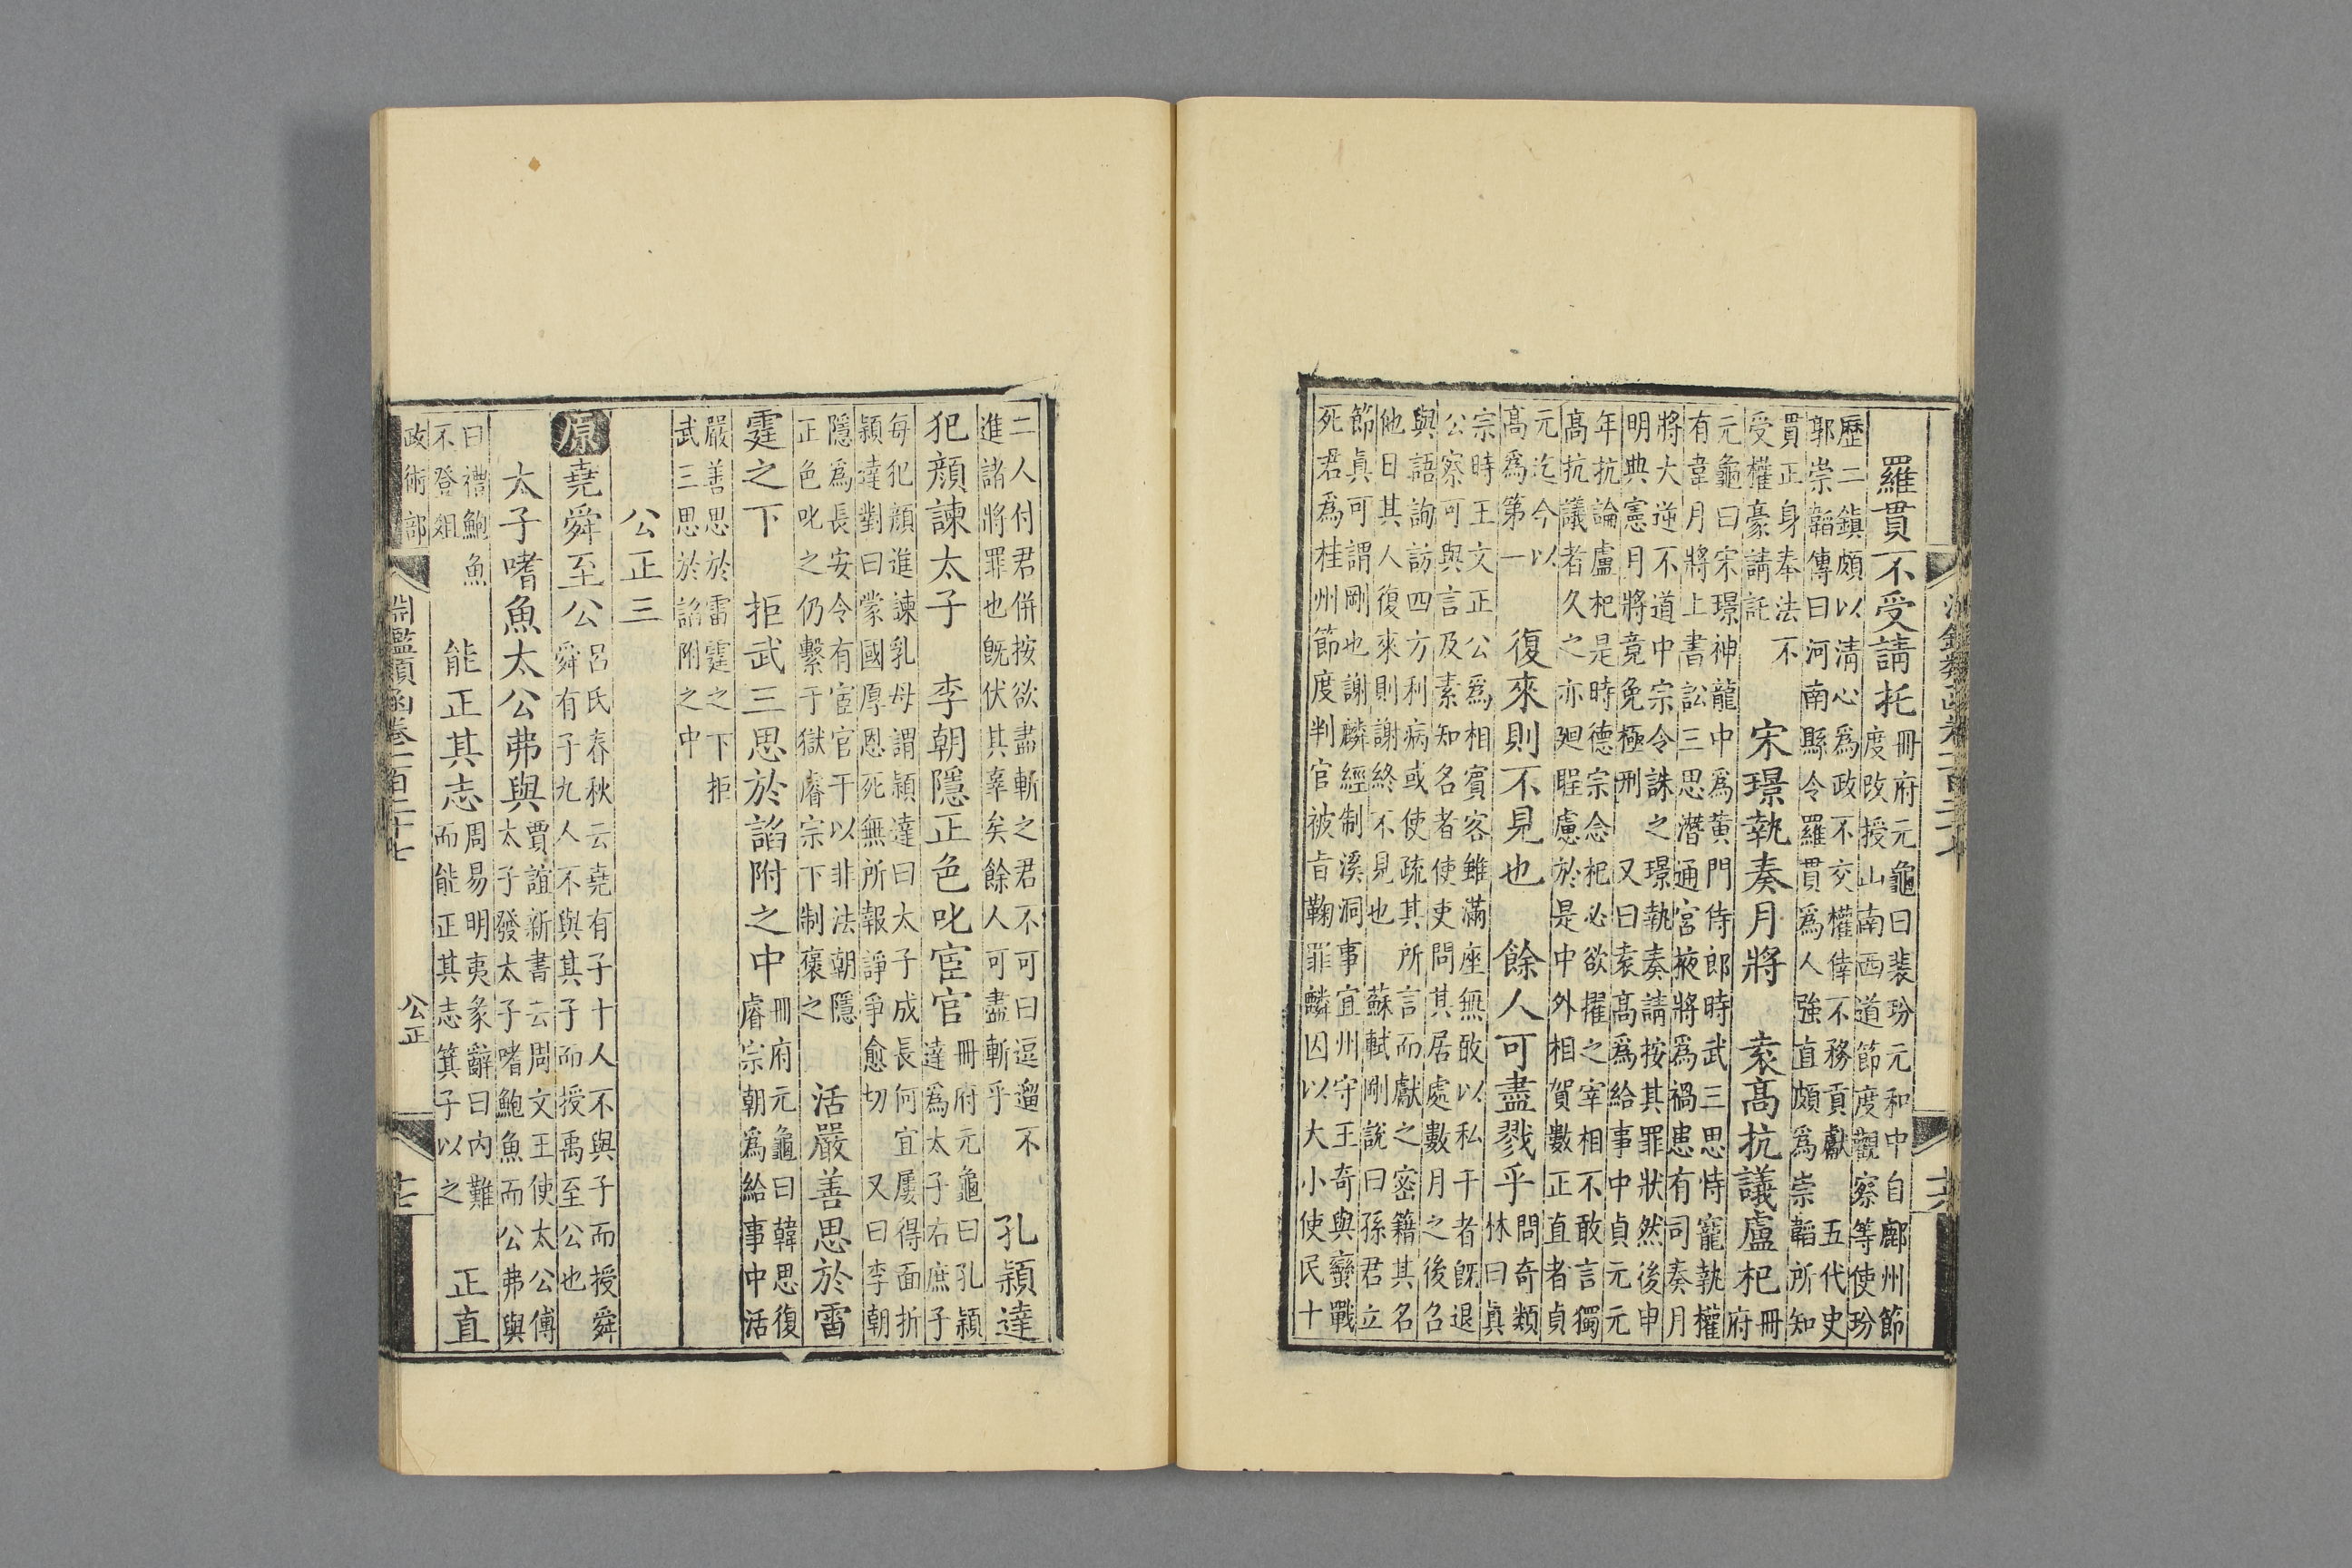 淵鑑類函卷一百二十七
十六
羅貫不受請托
冊府元龜曰裴玢元和中自鄜州節
度改授山南西道節度觀察等使玢
歷二鎮頗以清心爲政不交權倖不務貢獻　五代史
郭崇韜傳曰河南縣令羅貫爲人強直頗爲崇韜所知
貫正身奉法不
受權豪請託
宋璟執奏月將　袁高抗議盧杞
冊
府
元龜曰宋璟神龍中爲黃門侍郎時武三思恃寵執權
有韋月將上書訟三思潛通宮掖將爲禍患有司奏月
將大逆不道中宗令誅之璟執奏請按其罪狀然後申
明典憲月將竟免極刑　又曰袁高爲給事中貞元元
年抗論盧杞是時德宗念杞必欲擢之宰相不敢言獨
高抗議者久之亦廻睲慮於是中外相賀數正直者貞
元迄今以
高爲第一
復來則不見也　餘人可盡戮乎
問奇類
林曰眞
宗時王文正公爲相賓客雖滿座無敢以私干者既退
公察可與言及素知名者使吏問其居處數月之後召
與語詢訪四方利病或使疏其所言而獻之密籍其名
他日其人復來則謝終不見也　蘇軾剛說曰孫君立
節眞可謂剛也謝麟經制溪洞事宜州守王奇與蠻戰
死君爲桂州節度判官被旨鞠罪麟囚以大小使民十
二人付君併按欲盡斬之君不可曰逗遛不
進諸將罪也既伏其辜矣餘人可盡斬乎
孔穎達
犯顏諫太子　李朝隱正色叱宦官
冊府元龜曰孔穎
達爲太子右庶子
每犯顏進諫乳母謂穎達曰太子成長何宜屢得面折
穎達對曰蒙國厚恩死無所報諍爭愈切　又曰李朝
隱爲長安令有宦官干以非法朝隱
正色叱之仍繫于獄睿宗下制褒之
活嚴善思於雷
霆之下　拒武三思於諂附之中
冊府元龜曰韓思復
睿宗朝爲給事中活
嚴善思於雷霆之下拒
武三思於諂附之中
公正三
原　堯舜至公
呂氏春秋云堯有子十人不與子而授舜
舜有子九人不與其子而授禹至公也
太子嗜魚太公弗與
賈誼新書云周文王使太公傅
太子發太子嗜鮑魚而公弗與
曰禮鮑魚
不登俎
能正其志
周易明夷彖辭曰內難
而能正其志箕子以之
正直
政術部
淵鑑類函卷一百二十七
公正
十七